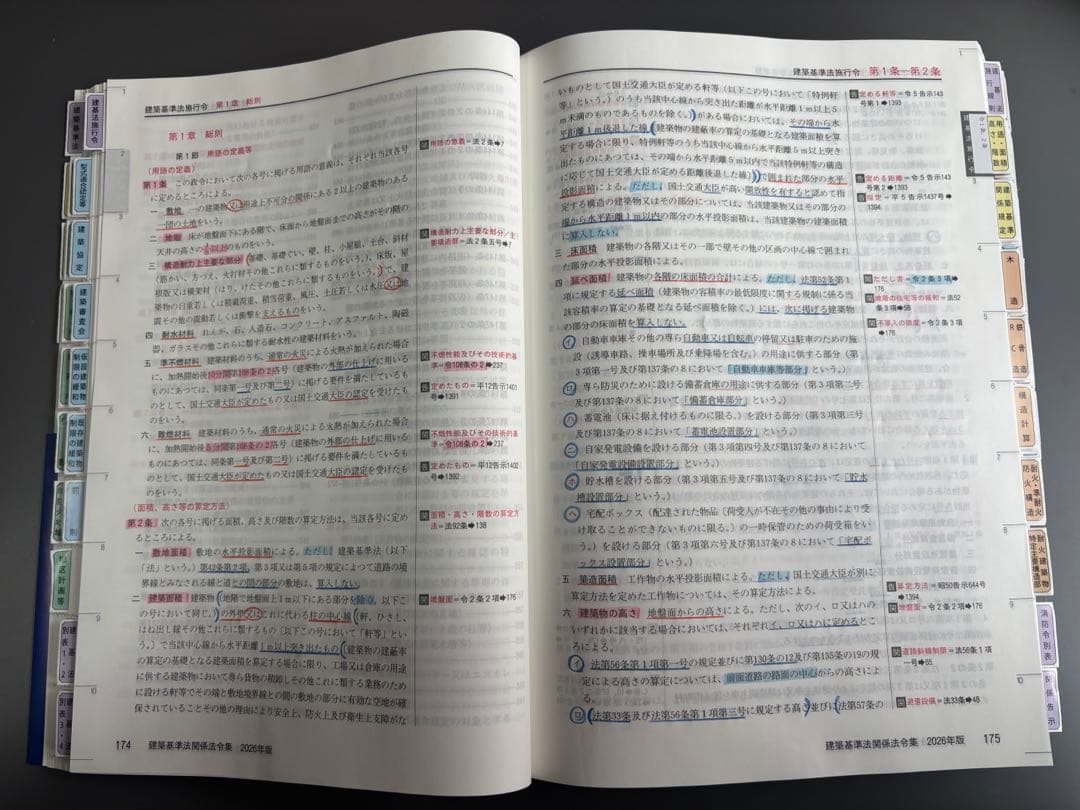 建築基準法施行令 第1章 総則
第1章 総則
第1節 用語の定義等
(用語の定義)
第1条 この政令において次の各号に掲げる用語の意義は、それぞれ当該各号
に定めるところによる。
一 敷地 一の建築物又は用途上不可分の関係にある2以上の建築物のある
一団の土地をいう。
二 地階 床が地盤面下にある階で、床面から地盤面までの高さがその階の
天井の高さの1/3以上のものをいう。
三 構造耐力上主要な部分 基礎、基礎ぐい、壁、柱、小屋組、土台、斜材
(筋かい、方づえ、火打材その他これらに類するものをいう。)、床版、屋
根版又は横架材(はり、けたその他これらに類するものをいう。)で、建
築物の自重若しくは積載荷重、積雪荷重、風圧、土圧若しくは水圧又は地
震その他の震動若しくは衝撃を支えるものをいう。
四 耐水材料 れんが、石、人造石、コンクリート、アスファルト、陶磁
器、ガラスその他これらに類する耐水性の建築材料をいう。
五 準不燃材料 建築材料のうち、通常の火災による火熱が加えられた場合
に、加熱開始後10分間第108条の2各号(建築物の外部の仕上げに用いる
ものにあつては、同条第一号及び第二号)に掲げる要件を満たしているも
のとして、国土交通大臣が定めたもの又は国土交通大臣の認定を受けたも
のをいう。
六 難燃材料 建築材料のうち、通常の火災による火熱が加えられた場合
に、加熱開始後5分間第108条の2各号(建築物の外部の仕上げに用いる
ものにあつては、同条第一号及び第二号)に掲げる要件を満たしているも
のとして、国土交通大臣が定めたもの又は国土交通大臣の認定を受けたも
のをいう。
(面積、高さ等の算定方法)
第2条 次の各号に掲げる面積、高さ及び階数の算定方法は、当該各号に定め
るところによる。
一 敷地面積 敷地の水平投影面積による。ただし、建築基準法(以下
「法」という。)第42条第2項、第3項又は第5項の規定によつて道路の境
界線とみなされる線と道との間の部分の敷地は、算入しない。
二 建築面積 建築物(地階で地盤面上1m以下にある部分を除く。以下こ
の号において同じ。)の外壁又はこれに代わる柱の中心線(軒、ひさし、
はね出し縁その他これらに類するもの(以下この号において「軒等」とい
う。)で当該中心線から水平距離1m以上突き出たもの(建築物の建蔽率
の算定の基礎となる建築面積を算定する場合に限り、工場又は倉庫の用途
に供する建築物において専ら貨物の積卸しその他これに類する業務のため
に設ける軒等でその端と敷地境界線との間の敷地の部分に有効な空地が確
保されていることその他の理由により安全上、防火上及び衛生上支障がな
用語の意義=法2条➡7
構造耐力上主要な部分/主
要構造部=法2条五号➡7
不燃性能及びその技術的基
準=令108条の2➡237
定めたもの=平12告示1401
号➡1391
不燃性能及びその技術的基
準=令108条の2➡237
定めたもの=平12告示1402
➡1392
面積・高さ・階数の算定方
法=法92条➡138
地盤面=令2条2項➡176
174 建築基準法関係法令集 2026年版
建築基準法施行令 第1条―第2条
いものとして国土交通大臣が定める軒等(以下この号において「特例軒
等」という。)のうち当該中心線から突き出た距離が水平距離1m以上5
m未満のものであるものを除く。)がある場合においては、その端から水
平距離1m後退した線(建築物の建蔽率の算定の基礎となる建築面積を算
定する場合に限り、特例軒等のうち当該中心線から水平距離5m以上突き
出たものにあつては、その端から水平距離5m以内で当該特例軒等の構造
に応じて国土交通大臣が定める距離後退した線))で囲まれた部分の水平
投影面積による。ただし、国土交通大臣が高い開放性を有すると認めて指
定する構造の建築物又はその部分については、当該建築物又はその部分の
端から水平距離1m以内の部分の水平投影面積は、当該建築物の建築面積
に算入しない。
三 床面積 建築物の各階又はその一部で壁その他の区画の中心線で囲まれ
た部分の水平投影面積による。
四 延べ面積 建築物の各階の床面積の合計による。ただし、法第52条第1
項に規定する延べ面積(建築物の容積率の最低限度に関する規制に係る当
該容積率の算定の基礎となる延べ面積を除く。)には、次に掲げる建築物
の部分の床面積を算入しない。
イ 自動車車庫その他の専ら自動車又は自転車の停留又は駐車のための施
設(誘導車路、操車場所及び乗降場を含む。)の用途に供する部分(第
3項第一号及び第137条の8において「自動車車庫等部分」という。)
ロ 専ら防災のために設ける備蓄倉庫の用途に供する部分(第3項第二号
及び第137条の8において「備蓄倉庫部分」という。)
ハ 蓄電池(床に据え付けるものに限る。)を設ける部分(第3項第三号
及び第137条の8において「蓄電池設置部分」という。)
ニ 自家発電設備を設ける部分(第3項第四号及び第137条の8において
「自家発電設備設置部分」という。)
ホ 貯水槽を設ける部分(第3項第五号及び第137条の8において「貯水
槽設置部分」という。)
ヘ 宅配ボックス(配達された物品(荷受人が不在その他の事由により受
け取ることができないものに限る。)の一時保管のための荷受箱をい
う。)を設ける部分(第3項第六号及び第137条の8において「宅配ボ
ックス設置部分」という。)
五 築造面積 工作物の水平投影面積による。ただし、国土交通大臣が別に
算定方法を定めた工作物については、その算定方法による。
六 建築物の高さ 地盤面からの高さによる。ただし、次のイ、ロ又はハの
いずれかに該当する場合においては、それぞれイ、ロ又はハに定めるとこ
ろによる。
イ 法第56条第1項第一号の規定並びに第130条の12及び第135条の19の規
定による高さの算定については、前面道路の路面の中心からの高さによ
る。
ロ 法第33条及び法第56条第1項第三号に規定する高さ並びに法第57条の
定める軒等=令5告示143
号第1➡1393
定める距離=令5告示143
号第2➡1393
指定=平5告示1437号➡
1394
ただし書=令2条3項➡
176
=法52
条3項➡56
不算入の限度=令2条3項
➡176
算定方法=昭50告示644号
➡1394
地盤面=令2条2項➡176
道路斜線制限=法56条1項
一号➡65
避雷設備=法33条➡48
建築基準法関係法令集 2026年版 175
建築基準法
建基法施行令
型式適合認定等
建築協定
建築審査会
仮設建築物制限の緩和
既存建築物制限の緩和
別表1・2
別表3・4
用語・面積高さ・階数
木造
鉄骨RC造
構造計算
耐火・準耐火防火構造
耐火建築物特定主要構造部
消防令別表